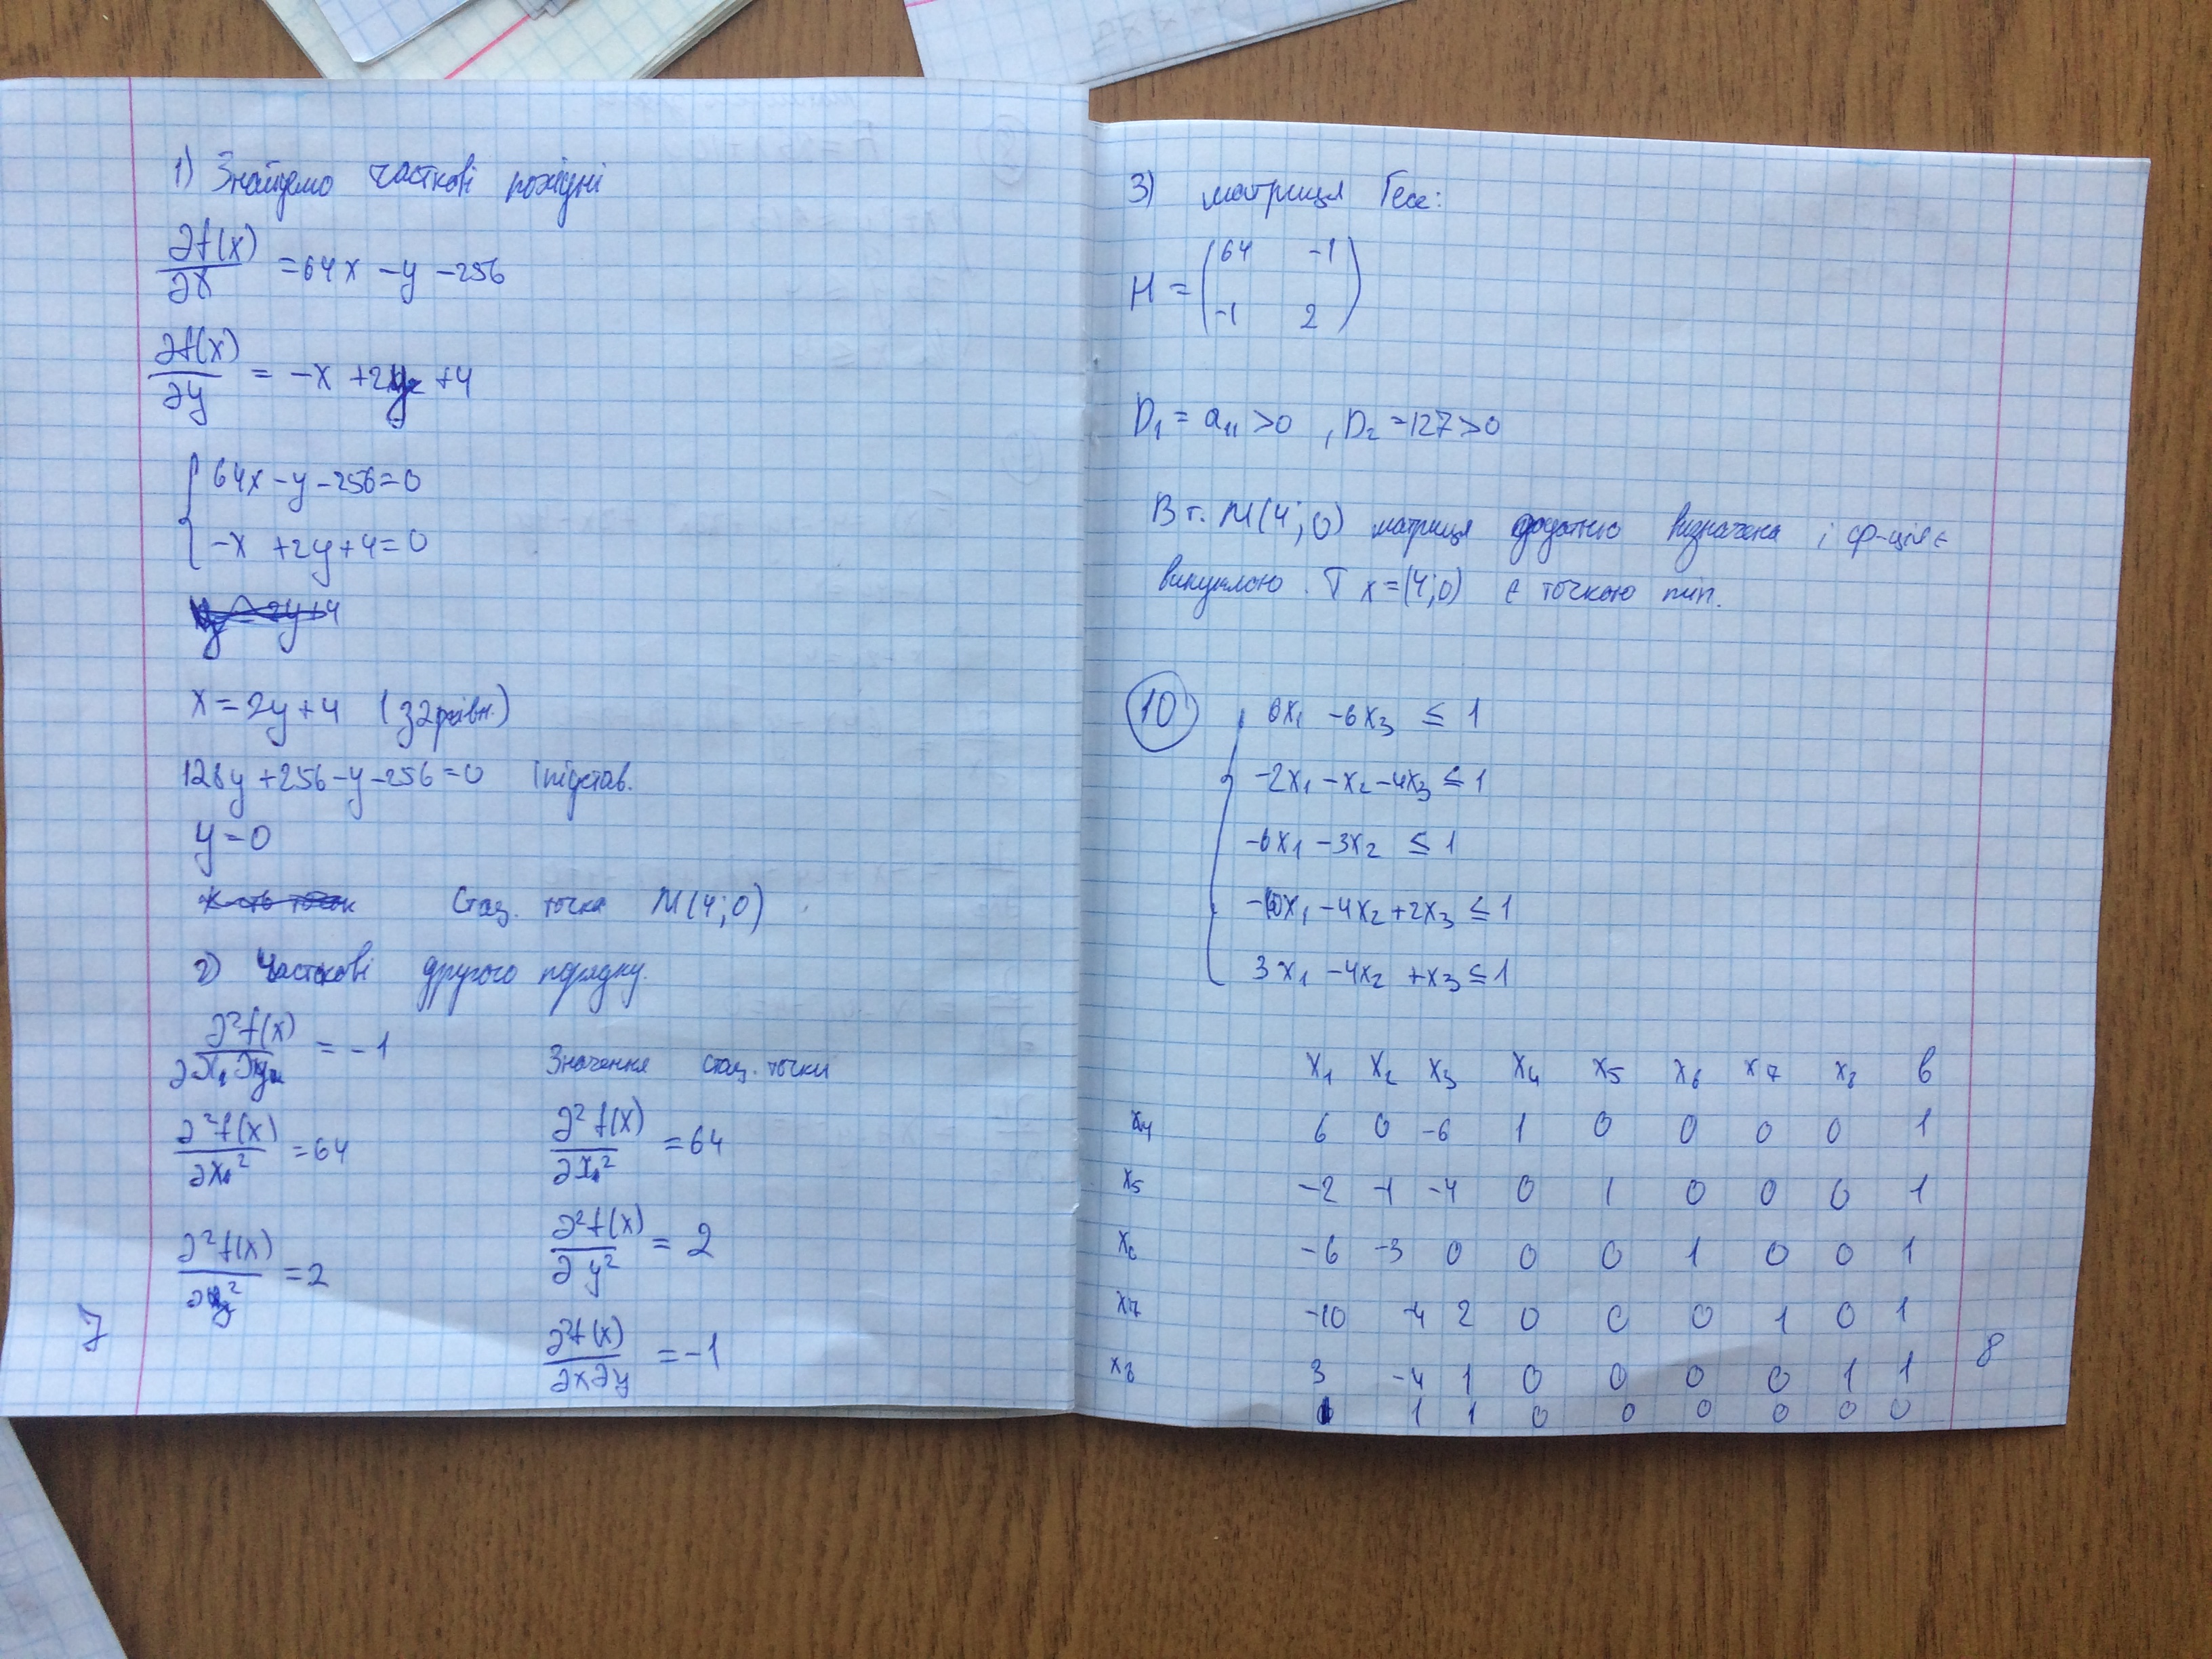 1) Знайдемо часткові похідні
∂f(x)/∂x = 64x - y - 256
∂f(x)/∂y = -x + 2y + 4
{ 64x - y - 256 = 0
-x + 2y + 4 = 0
x = 2y + 4 (з 2 рівн.)
128y + 256 - y - 256 = 0 підстав.
y = 0
Стац. точка M(4;0)
2) Часткові другого порядку.
∂²f(x)/∂x∂y = -1
Значення стац. точки
∂²f(x)/∂x² = 64
∂²f(x)/∂x² = 64
∂²f(x)/∂y² = 2
∂²f(x)/∂y² = 2
∂²f(x)/∂x∂y = -1
7
3) матриця Гесе:
H = (64 -1
-1 2)
D₁ = a₁₁ > 0, D₂ = 127 > 0
В т. M(4;0) матриця додатньо визначена і ф-ція є
випуклою. Т x = (4;0) є точкою min.
10
{ 6x₁ - 6x₃ ≤ 1
-2x₁ - x₂ - 4x₃ ≤ 1
-6x₁ - 3x₂ ≤ 1
-10x₁ - 4x₂ + 2x₃ ≤ 1
3x₁ - 4x₂ + x₃ ≤ 1
x₁ x₂ x₃ x₄ x₅ x₆ x₇ x₈ в
x₄ 6 0 -6 1 0 0 0 0 1
x₅ -2 -1 -4 0 1 0 0 0 1
x₆ -6 -3 0 0 0 1 0 0 1
x₇ -10 -4 2 0 0 0 1 0 1
x₈ 3 -4 1 0 0 0 0 1 1
1 1 0 0 0 0 0 0
8